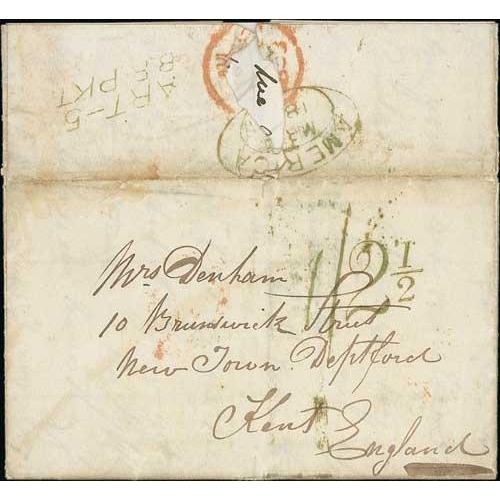 ART-5
BR PKT
AMERICA
Mrs Denham
10 Brunswick Street
New Town Deptford
Kent England
1/2½